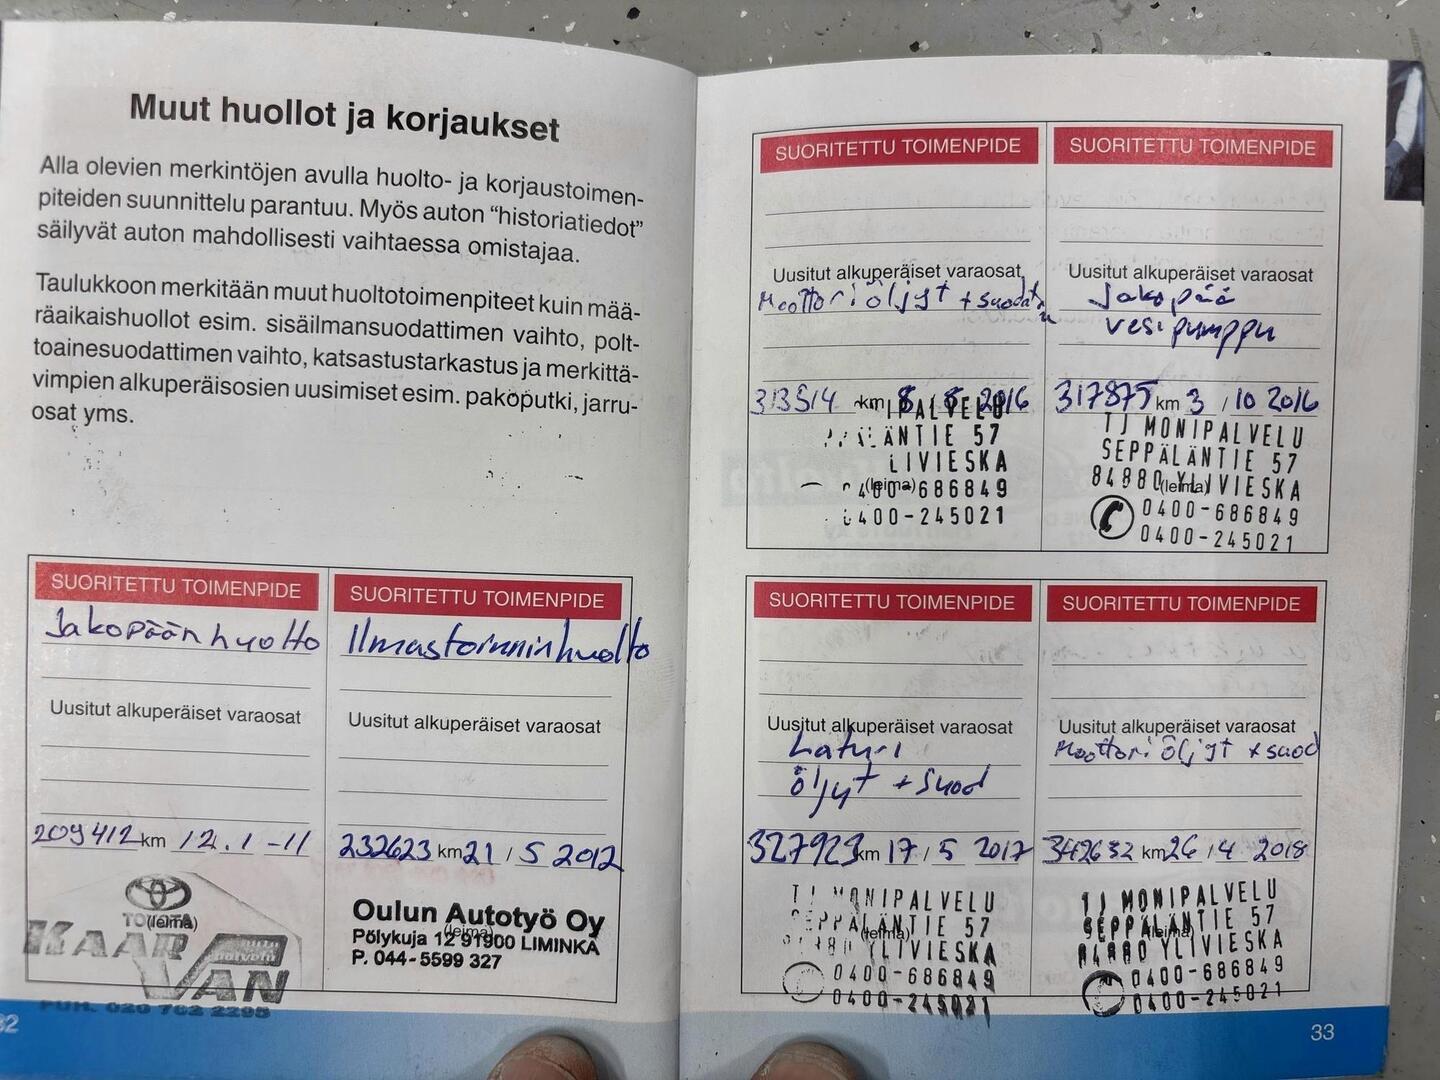 Muut huollot ja korjaukset
Alla olevien merkintöjen avulla huolto- ja korjaustoimen-
piteiden suunnittelu parantuu. Myös auton “historiatiedot”
säilyvät auton mahdollisesti vaihtaessa omistajaa.
Taulukkoon merkitään muut huoltotoimenpiteet kuin mää-
räaikaishuollot esim. sisäilmansuodattimen vaihto, polt-
toainesuodattimen vaihto, katsastustarkastus ja merkittä-
vimpien alkuperäisosien uusimiset esim. pakoputki, jarru-
osat yms.
SUORITETTU TOIMENPIDE
Jakopään huolto
Uusitut alkuperäiset varaosat
209412 km 12.1-11
TOYOTA
(leima)
KAAR
VAN
PUH. 020 762 2295
SUORITETTU TOIMENPIDE
Ilmastoinninhuolto
Uusitut alkuperäiset varaosat
232623 km 21 / 5 2012
Oulun Autotyö Oy
(leima)
Pölykuja 12 91900 LIMINKA
P. 044-5599 327
32
SUORITETTU TOIMENPIDE
Uusitut alkuperäiset varaosat
Moottoriöljyt + suodatin
313514 km 8 / 8 2016
IPALVELU
ÄNTIE 57
LIVIESKA
(leima)
400-686849
0400-245021
SUORITETTU TOIMENPIDE
Uusitut alkuperäiset varaosat
Jakopää
vesipumppu
317875 km 3 / 10 2016
TJ MONIPALVELU
SEPPÄLÄNTIE 57
84880 YLIVIESKA
(leima)
0400-686849
0400-245021
SUORITETTU TOIMENPIDE
Uusitut alkuperäiset varaosat
Laturi
öljyt + suod
327923 km 17 / 5 2017
TJ MONIPALVELU
SEPPÄLÄNTIE 57
(leima)
84880 YLIVIESKA
0400-686849
0400-245021
SUORITETTU TOIMENPIDE
Uusitut alkuperäiset varaosat
Moottoriöljyt + suod
342632 km 26 / 4 2018
TJ MONIPALVELU
SEPPÄLÄNTIE 57
(leima)
84880 YLIVIESKA
0400-686849
0400-245021
33